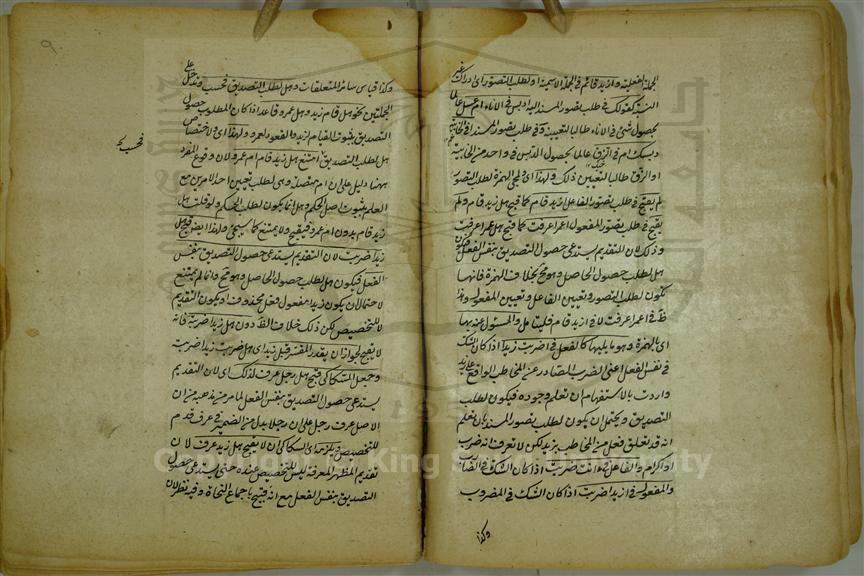 الجملة الفعلية وازيد قائم في الجملة الاسمية او لطلب التصور اى ادراك غير
النسبة كقولك في طلب تصور المسند اليه ادبس في الاناء ام عسل عالما
بحصول شئ في الاناء طالبا لتعيينه وفي طلب تصور المسند افي الخابية
دبسك ام في الزق عالما بحصول الدبس في واحد من الخابية
او الزق طالبا لتعيين ذلك ولهذا اى لمجئ الهمزة لطلب التصور
لم يقبح في طلب تصور الفاعل ازيد قام كما قبح هل زيد قام ولم
يقبح في طلب تصور المفعول اعمرا عرفت كما قبح هل عمرا عرفت
وذلك لان التقديم يستدعى حصول التصديق بنفس الفعل فيكون
هل لطلب حصول الحاصل وهو مح بخلاف الهمزة فانها
تكون لطلب التصور وتعيين الفاعل وتعيين المفعول وهذا
ظ في اعمرا عرفت لا في ازيد قام فليتامل والمسئول عنه بها
اى بالهمزة هو ما يليها كالفعل في اضربت زيدا اذا كان الشك
في نفس الفعل اعنى الضرب الصادر من المخاطب الواقع على زيد
واردت بالاستفهام ان تعلم وجوده فيكون لطلب
التصديق ويحتمل ان يكون لطلب تصور المسند بان تعلم
انه قد تعلق فعل من المخاطب بزيد لكن لا تعرف انه ضرب
او اكرام والفاعل في اانت ضربت اذا كان الشك في الضارب
والمفعول في ازيدا ضربت اذا كان الشك في المضروب
وكذا
وكذا قياس سائر المتعلقات وهل لطلب التصديق فحسب وتدخل على
الجملتين نحو هل قام زيد وهل عمرو قاعد اذا كان المطلوب حصول
التصديق بثبوت القيام لزيد والقعود لعمرو ولهذا اى لاختصاص
هل لطلب التصديق امتنع هل زيد قام ام عمرو لان وقوع المفرد
ههنا دليل على ان ام متصلة وهى لطلب تعيين احد الامرين مع
العلم بثبوت اصل الحكم وهل انما يكون لطلب الحكم ولو قلت هل
زيد قام بدون ام عمرو فيقبح ولا يمتنع كما سيجئ ولهذا ايض قبح هل
زيدا ضربت لان التقديم يستدعى حصول التصديق بنفس
الفعل فيكون هل لطلب حصول الحاصل وهو مح وانما لم يمتنع
لاحتمال ان يكون زيدا مفعول فعل محذوف او يكون التقديم
لا للتخصيص لكن ذلك خلاف الظ دون هل زيدا ضربته فانه
لا يقبح لجواز ان يقدر المفسر قبل زيدا اى هل ضربت زيدا ضربته
وجعل السكاكى قبح هل رجل عرف لذلك اى لان التقديم
يستدعى حصول التصديق بنفس الفعل لما مر من مذهبه من ان
الاصل عرف رجل على ان رجل بدل من الضمير في عرف قدم
للتخصيص ويلزمه اى السكاكى ان لا يقبح هل زيد عرف لان
تقديم المظهر المعرفة ليس للتخصيص عنده حتى يستدعى حصول
التصديق بنفس الفعل مع انه قبيح باجماع النحاة وفيه نظر لان
Copyright © King Saud University